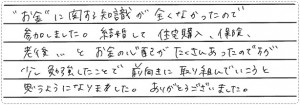 "お金"に関する知識が全くなかったので
参加しました。結婚して住宅購入、保険、
老後…とお金の心配がたくさんあったのですが
少し勉強したことで前向きに取り組んでいこうと
思うようになりました。ありがとうございました。